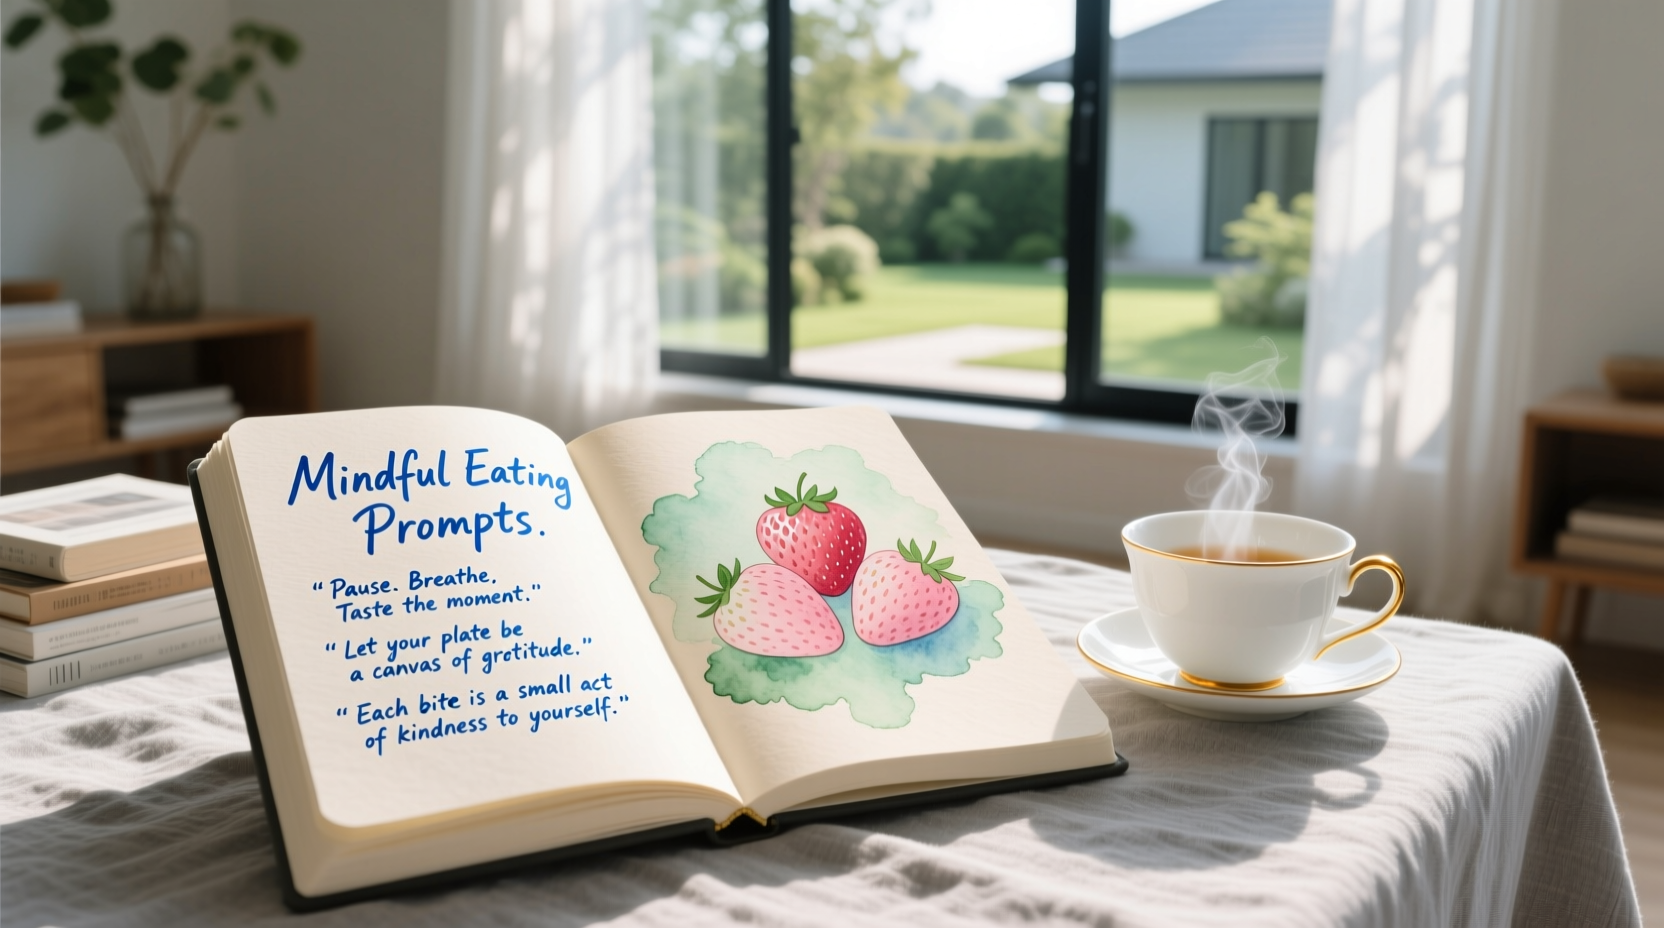 Mindful Eating
Prompts.
“Pause. Breathe.
Taste the moment.”
“Let your plate be
a canvas of grotitude.”
“Each bite is a small act
of kindness to yourself.”